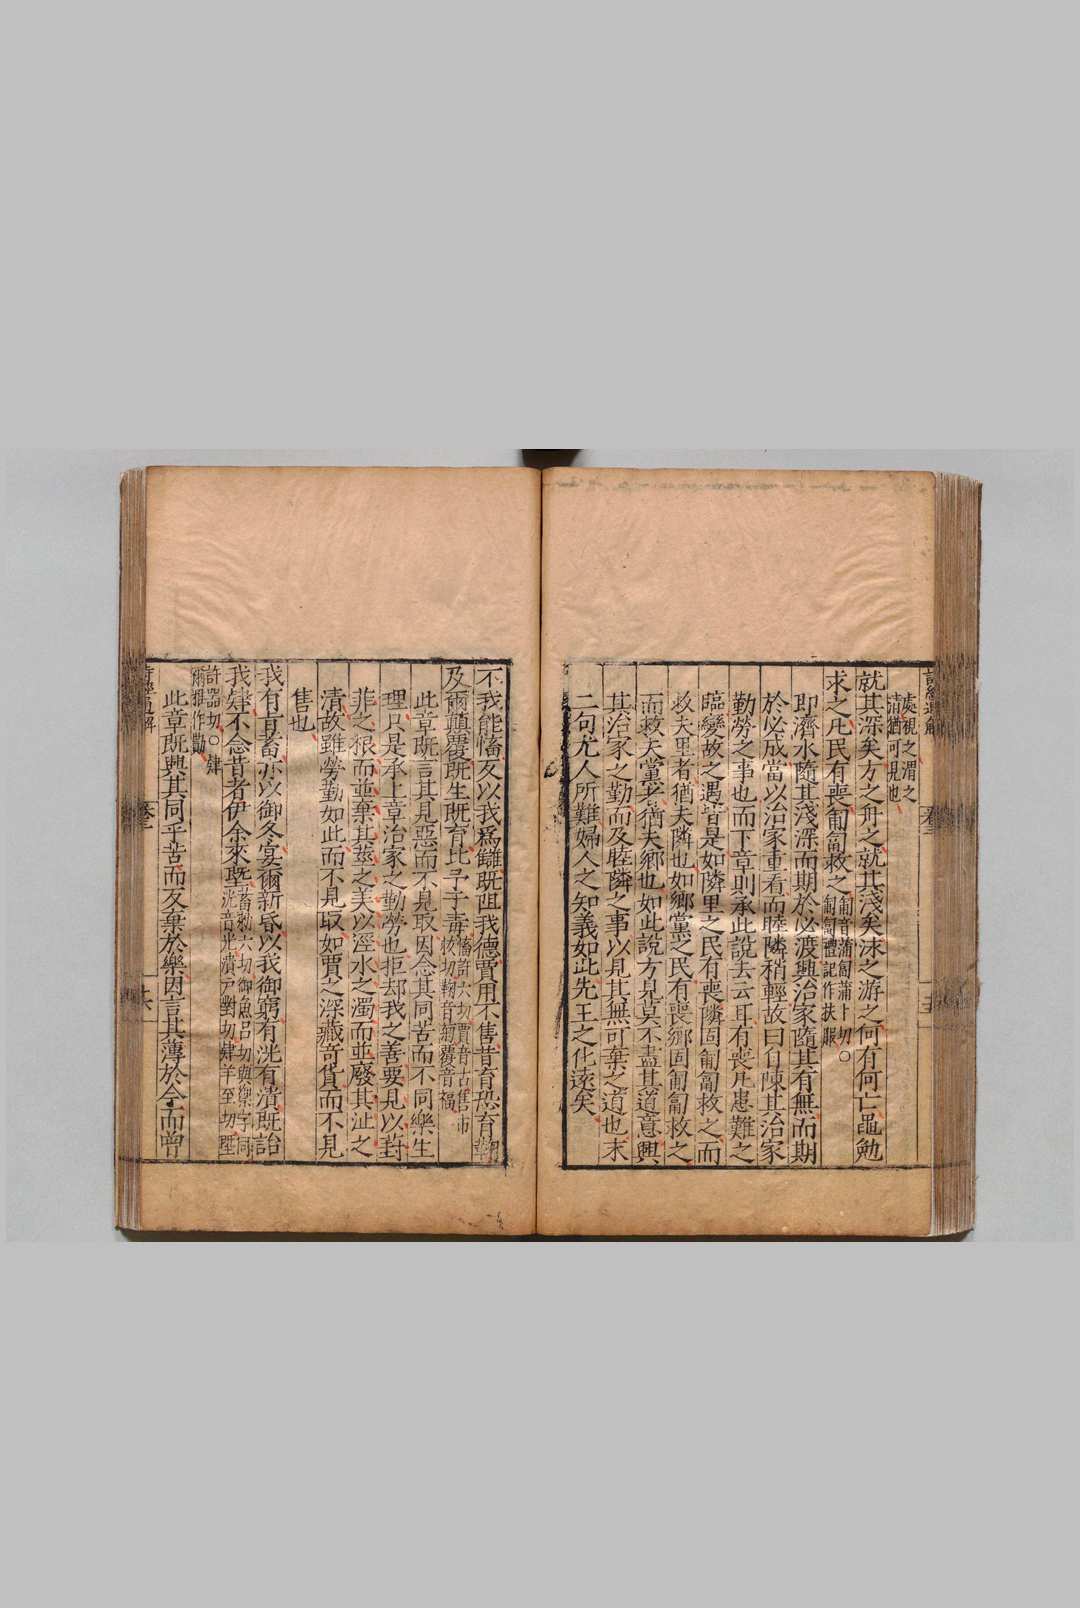 處視之渭之
清猶可見也
就其深矣方之舟之就其淺矣泳之游之何有何亡黽勉
求之凡民有喪匍匐救之
匍音蒲匐蒲卜切○
匍匐禮記作扶服
即濟水隨其淺深而期於必渡興治家隨其有無而期
於必成當以治家重看而睦隣稍輕故曰自陳其治家
勤勞之事也而下章則承此說去云耳有喪凡患難之
臨變故之遇皆是如隣里之民有喪隣固匍匐救之而
救夫里者猶夫隣也如鄉黨之民有喪鄉固匍匐救之
而救夫黨者猶夫鄉也如此說方見莫不盡其道意興
其治家之勤而及睦隣之事以見其無可棄之道也末
二句尤人所難婦人之知義如此先王之化遠矣
不我能慉反以我爲讎既阻我德賈用不售昔育恐育鞫
及爾顛覆既生既育比予于毒
慉許六切賈音古售市
救切鞫音菊覆音福
此章既言其見惡而不見取因念其同苦而不同樂生
理只是承上章治家之勤勞也拒却我之善要見以葑
菲之根而並棄其莖之美以涇水之濁而並廢其沚之
清故雖勞勤如此而不見取如賈之深藏奇貨而不見
售也
我有旨畜亦以御冬宴爾新昏以我御窮有洸有潰既詒
我肄不念昔者伊余來塈
畜勑六切御魚呂切與禦字同
洸音光潰戸對切肄羊至切塈
許器切○肄
爾雅作勩
此章既興其同乎苦而反棄於樂因言其薄於今而曾